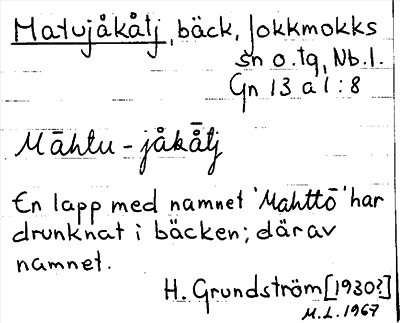 Matujåkåtj, bäck, Jokkmokks
sn o. tg, Nb.l.
Gn 13 a 1:8
Māhtu - jåkåtj
En lapp med namnet 'Mahttō' har
drunknat i bäcken; därav
namnet.
H. Grundström [1930?]
M.L. 1967